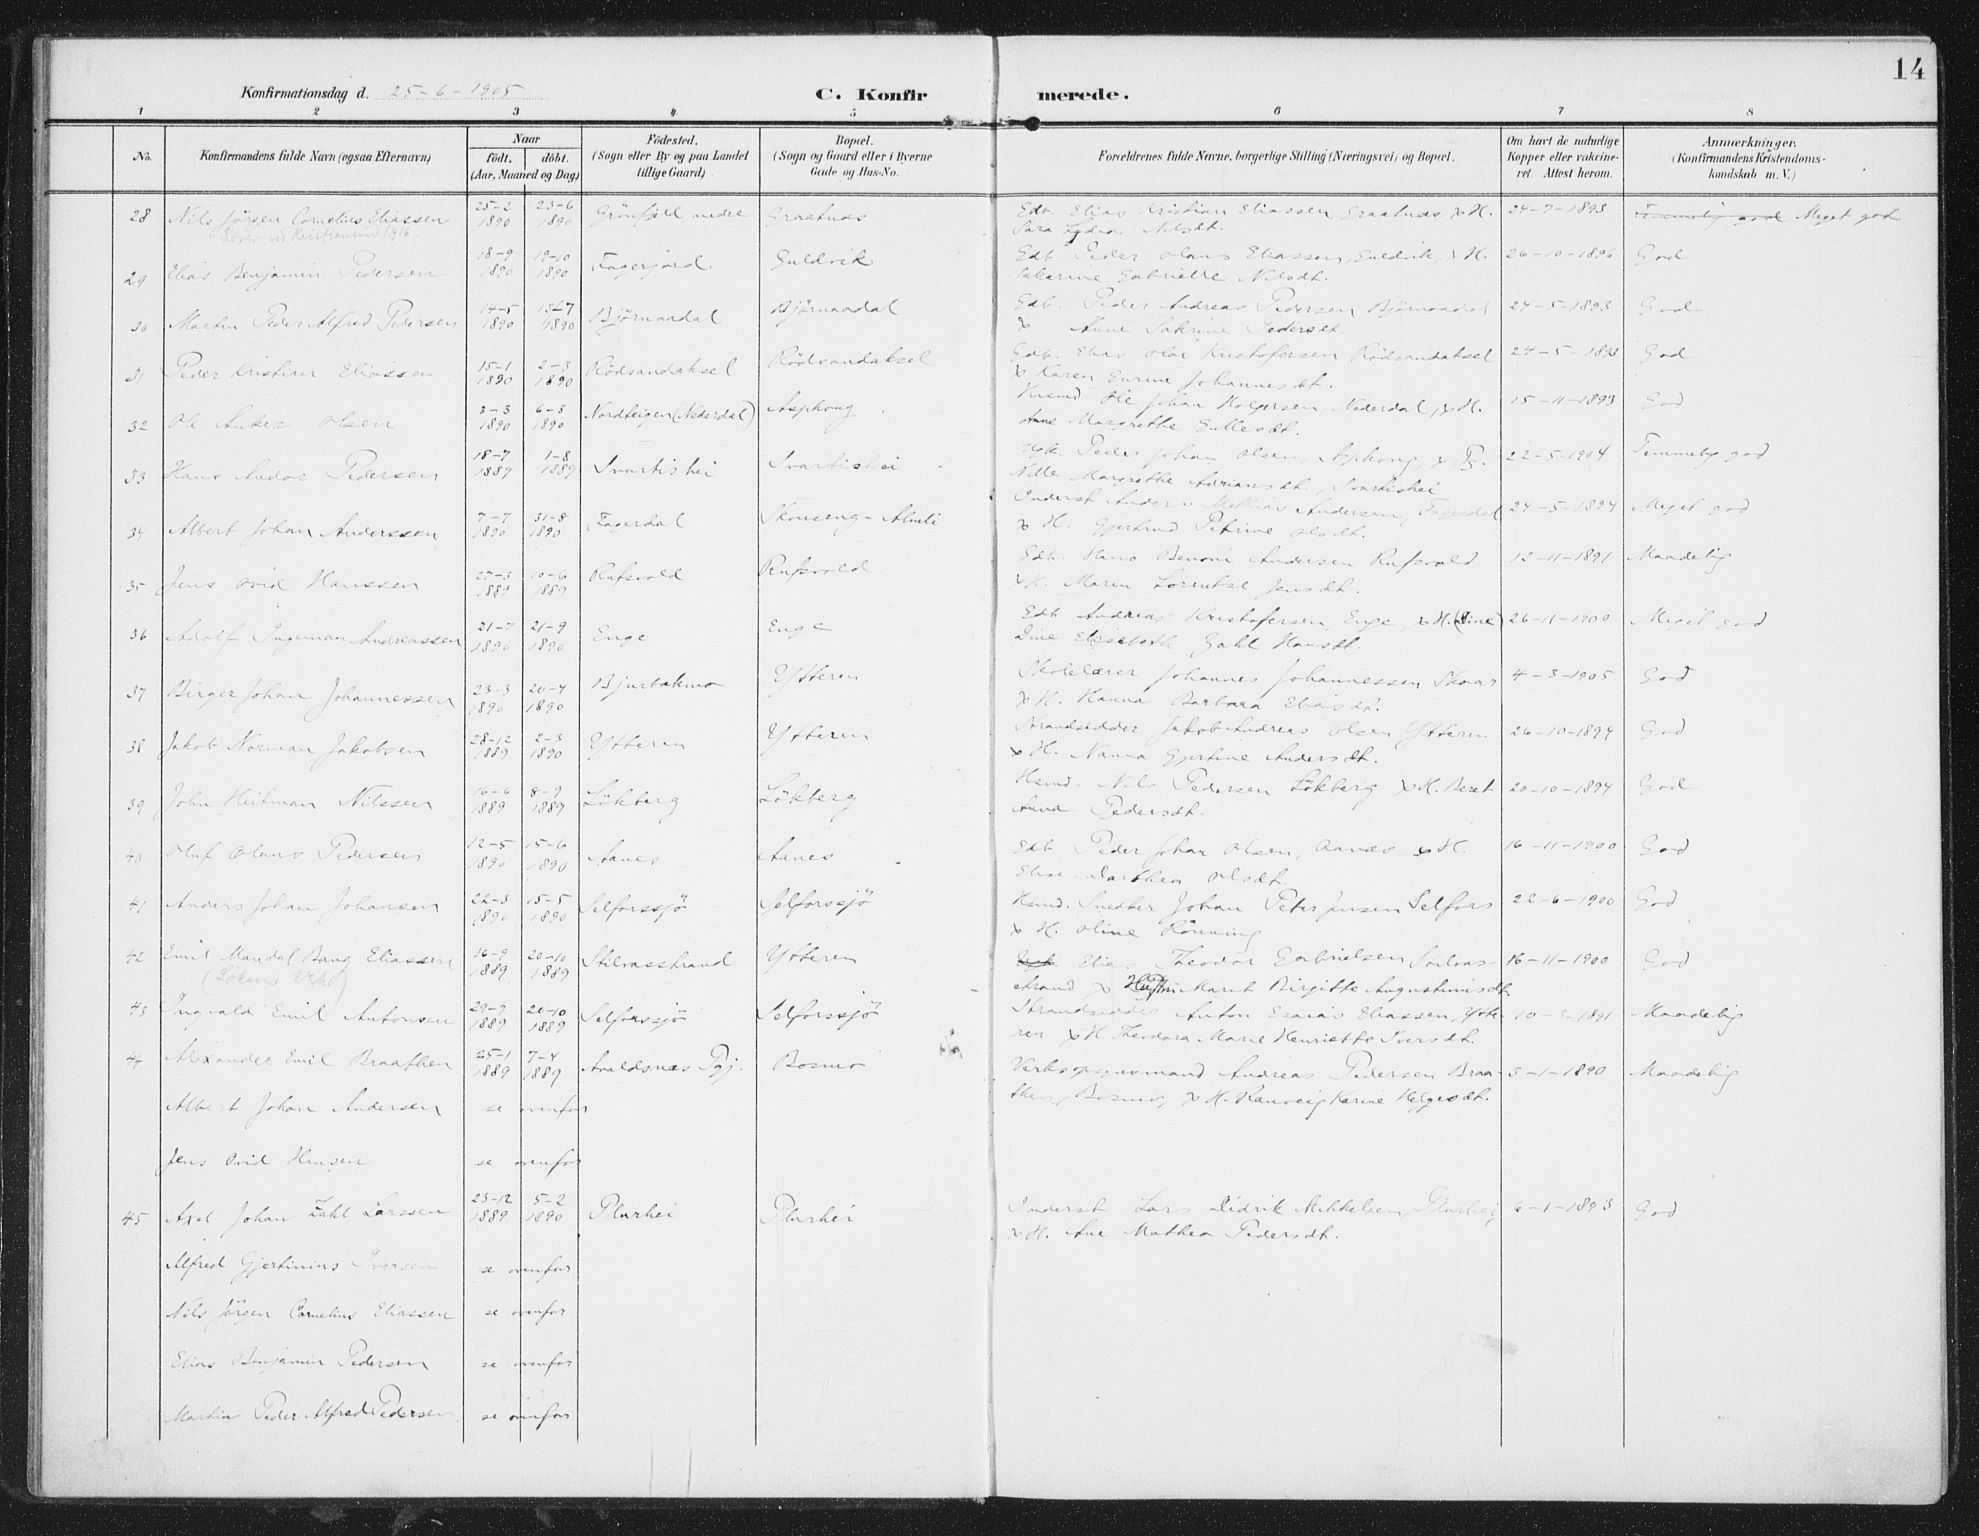 14
Konfirmationsdag d. 25-6-1905
C. Konfirmerede.
1 2 3 4 5 6 7 8
No. Konfirmandens fulde Navn (ogsaa Efternavn) Naar födt. döbt. (Aar, Maaned og Dag) Födested. (Sogn eller By og paa Landet tillige Gaard) Bopæl. (Sogn og Gaard eller i Byerne Gade og Hus-No. Forældrenes fulde Navne, borgerlige Stilling (Næringsvei) og Bopæl. Om havt de naturlige Kopper eller vakcineret. Attest herom. Anmærkninger. (Konfirmandens Kristendomskundskab m. V.)
28 Nils Jörgen Cornelius Eliassen 25-2 1890 23-6 1890 Grönfjeld nedre Graatnæs Edb. Elias Kristian Eliassen Graatnæs x H. 24-7-1893 Temmelig god Meget god
Sara Lydia Nilsdt.
29 Elias Benjamin Pedersen 18-9 1890 19-10 1890 Fagerjord Guldvik Edb. Peder Olaus Eliassen, Guldvik, x H. 26-10-1896 God
Gabrielle Nilsdt.
30 Martin Peder Alfred Pedersen 14-5 1890 13-7 1890 Björnaadal Björnaadal Edb. Peder Andreas Pedersen Björnaadal 24-5-1893 God
x Anne Pedersdt.
31 Peder Kristian Eliassen 15-1 1890 2-3 1890 Rödsandaksel Rödsandaksel Edb. Elias Olai Kristofersen Rödsandaksel 24-5-1893 God
x Karen Johannesdt.
32 Ole Anker Olsen 3-3 1890 6-3 1890 Nordteigen (Nederdal) Asphoug Husmd Ole Johan Holgersen, Nederdal, x H. 15-11-1893 God
Ane Margrethe Gullesdt.
33 Hans Andor Pedersen 18-7 1889 1-8 1889 Svartishei Svartishei Peder Johan Olsen, Asphoug, x Pg. 22-5-1904 Temmelig god
Nille Margrethe Adriansdt., Svartishei
34 Albert Johan Anderssen 7-7 1890 31-8 1890 Fagerdal Skonseng-Almli Inderst Anders Mathias Andersen, Fagerdal 24-5-1894 Meget god
x H. Gjertrud Petrine Olsdt.
35 Jens Ovid Hanssen 25-3 1889 10-6 1889 Rufsvold Rufsvold Edb. Hans Benoni Andersen Rufsvold 12-11-1891 Maadelig
x H. Maren Lorentse Jensdt.
36 Adolf Ingeman Andreassen 21-7 1890 21-9 1890 Enge Enge Edb Andreas Kristofersen, Enge, x H. (Sine) 26-11-1900 Meget god
Dine Elisebeth Gahl Hansdt.
37 Birger Johan Johannessen 23-3 1890 20-4 1890 Bjurbækmo Ytteren Skolelærer Johannes Johannessen 4-3-1905 God
x H. Hanna Barbara Eliasdt.
38 Jakob Norman Jakobsen 28-12 1889 2-3 1890 Ytteren Ytteren Strandsidder Jakob Andreas Olsen Ytteren 26-10-1894 God
x H. Nanna Gjertine Andersdt.
39 John Heitman Nilssen 16-6 1889 8-9 1889 Lökberg Lökberg Husmd. Nils Pedersen Lökberg x H. Beret 20-10-1894 God
Anna Pedersdt.
40 Oluf Olaus Pedersen 12-5 1890 15-6 1890 Aanes Aanes Edb Peder Johan Olsen, Aanæs x H. 16-11-1900 God
Elise Darthea Olsdt.
41 Anders Johan Johansen 22-3 1890 15-5 1890 Selforssjö Selforssjö Husmd. Snedker Johan Peter Jensen Selfors 22-6-1900 God
x H. Oline Rönning
42 Emil Mandal Bang Eliassen 16-9 1889 20-10 1889 Stilvasstrand Ytteren Elias Theodor Gabrielsen 16-11-1900 God
strand x Hustru Marit Birgitte Augustinusdt.
43 Ingvald Emil Antonsen 29-9 1889 20-10 1889 Selforssjö Selforssjö Strandsidder Anton Esaias Eliassen, Ytte- 10-5-1891 Maadelig
ren x H. Theodora Marie Henriette Iversdt.
44 Alexander Emil Braathen 25-1 1889 7-4 1889 Avaldsnæs Pgj. Bosmo Verksopsynsmand Andreas Pedersen Braa- 3-1-1890 Maadelig
then, Bosmo, x H. Ranveig Karine Helgesdt.
Albert Johan Andersen se ovenfor
Jens Ovid Hansen se ovenfor
45 Axel Johan Zahl Larssen 23-12 1889 5-2 1890 Plurhei Plurhei Inderst Lars Didrik Mikkelsen, Plurhei, 6-1-1893 God
x H. Ane Mathea Pedersdt.
Alfred Gjertinius Iversen se ovenfor
Nils Jörgen Cornelius Eliassen se ovenfor
Elias Benjamin Pedersen se ovenfor
Martin Peder Alfred Pedersen se ovenfor